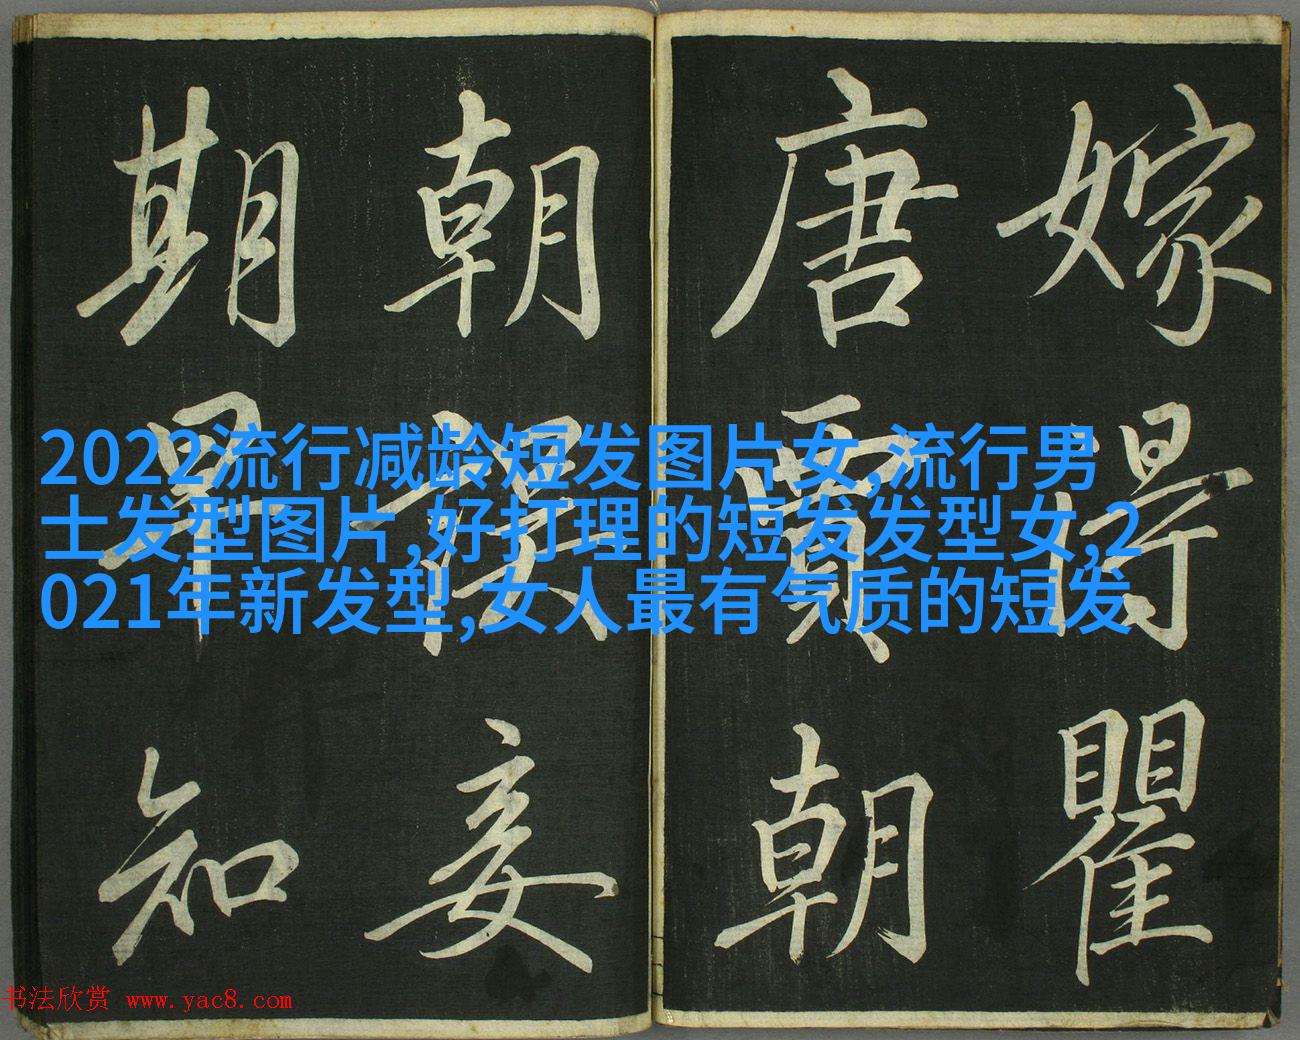 嫁得瞿
唐賈朝
朝誤妾
期早知
2022流行减龄短发图片女,流行男
士发型图片,好打理的短发发型女,2
021年新发型,女人最有气质的短发
书法欣赏 www.yac8.com